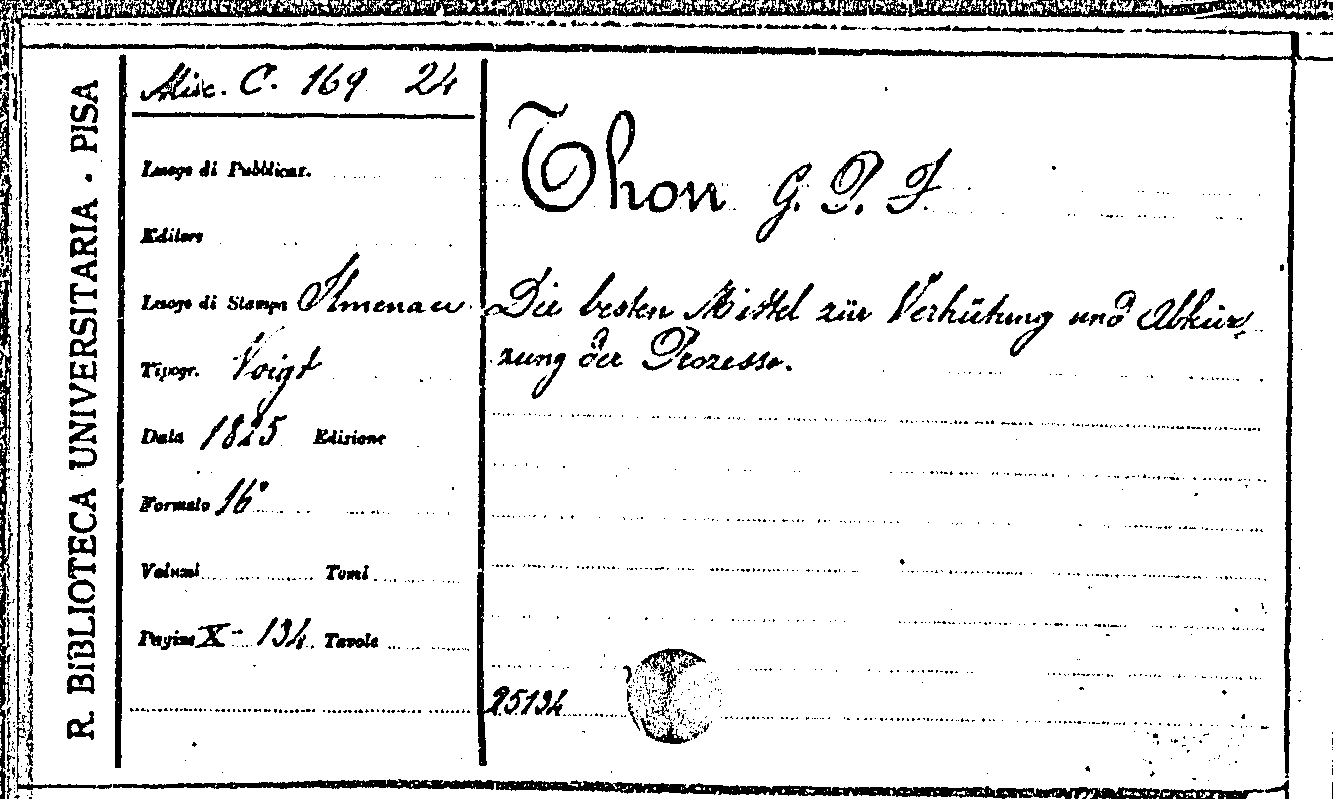 R. BIBLIOTECA UNIVERSITARIA - PISA
Misc. C. 169 24
Luogo di Pubblicaz.
Editore
Luogo di Stampa Ilmenau
Tipogr. Voigt
Data 1825 Edizione
Formato 16°
Volumi Tomi
Pagine X - 134. Tavole
Thon G. P. F.
Die besten Mittel zür Verhütung und Abkür-
zung der Prozesse.
25134